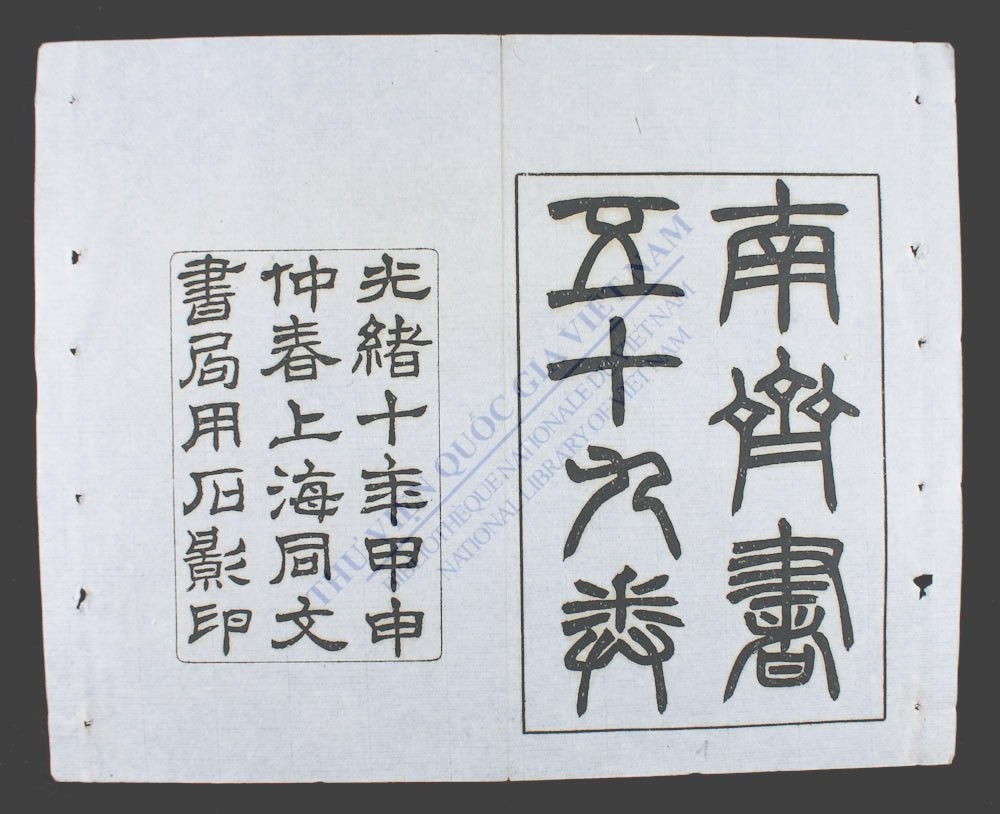 南齊書
五十九卷
光緒十年甲申
仲春上海同文
書局用石影印
THƯ VIỆN QUỐC GIA VIỆT NAM
BIBLIOTHÈQUE NATIONALE DU VIETNAM
NATIONAL LIBRARY OF VIETNAM
1